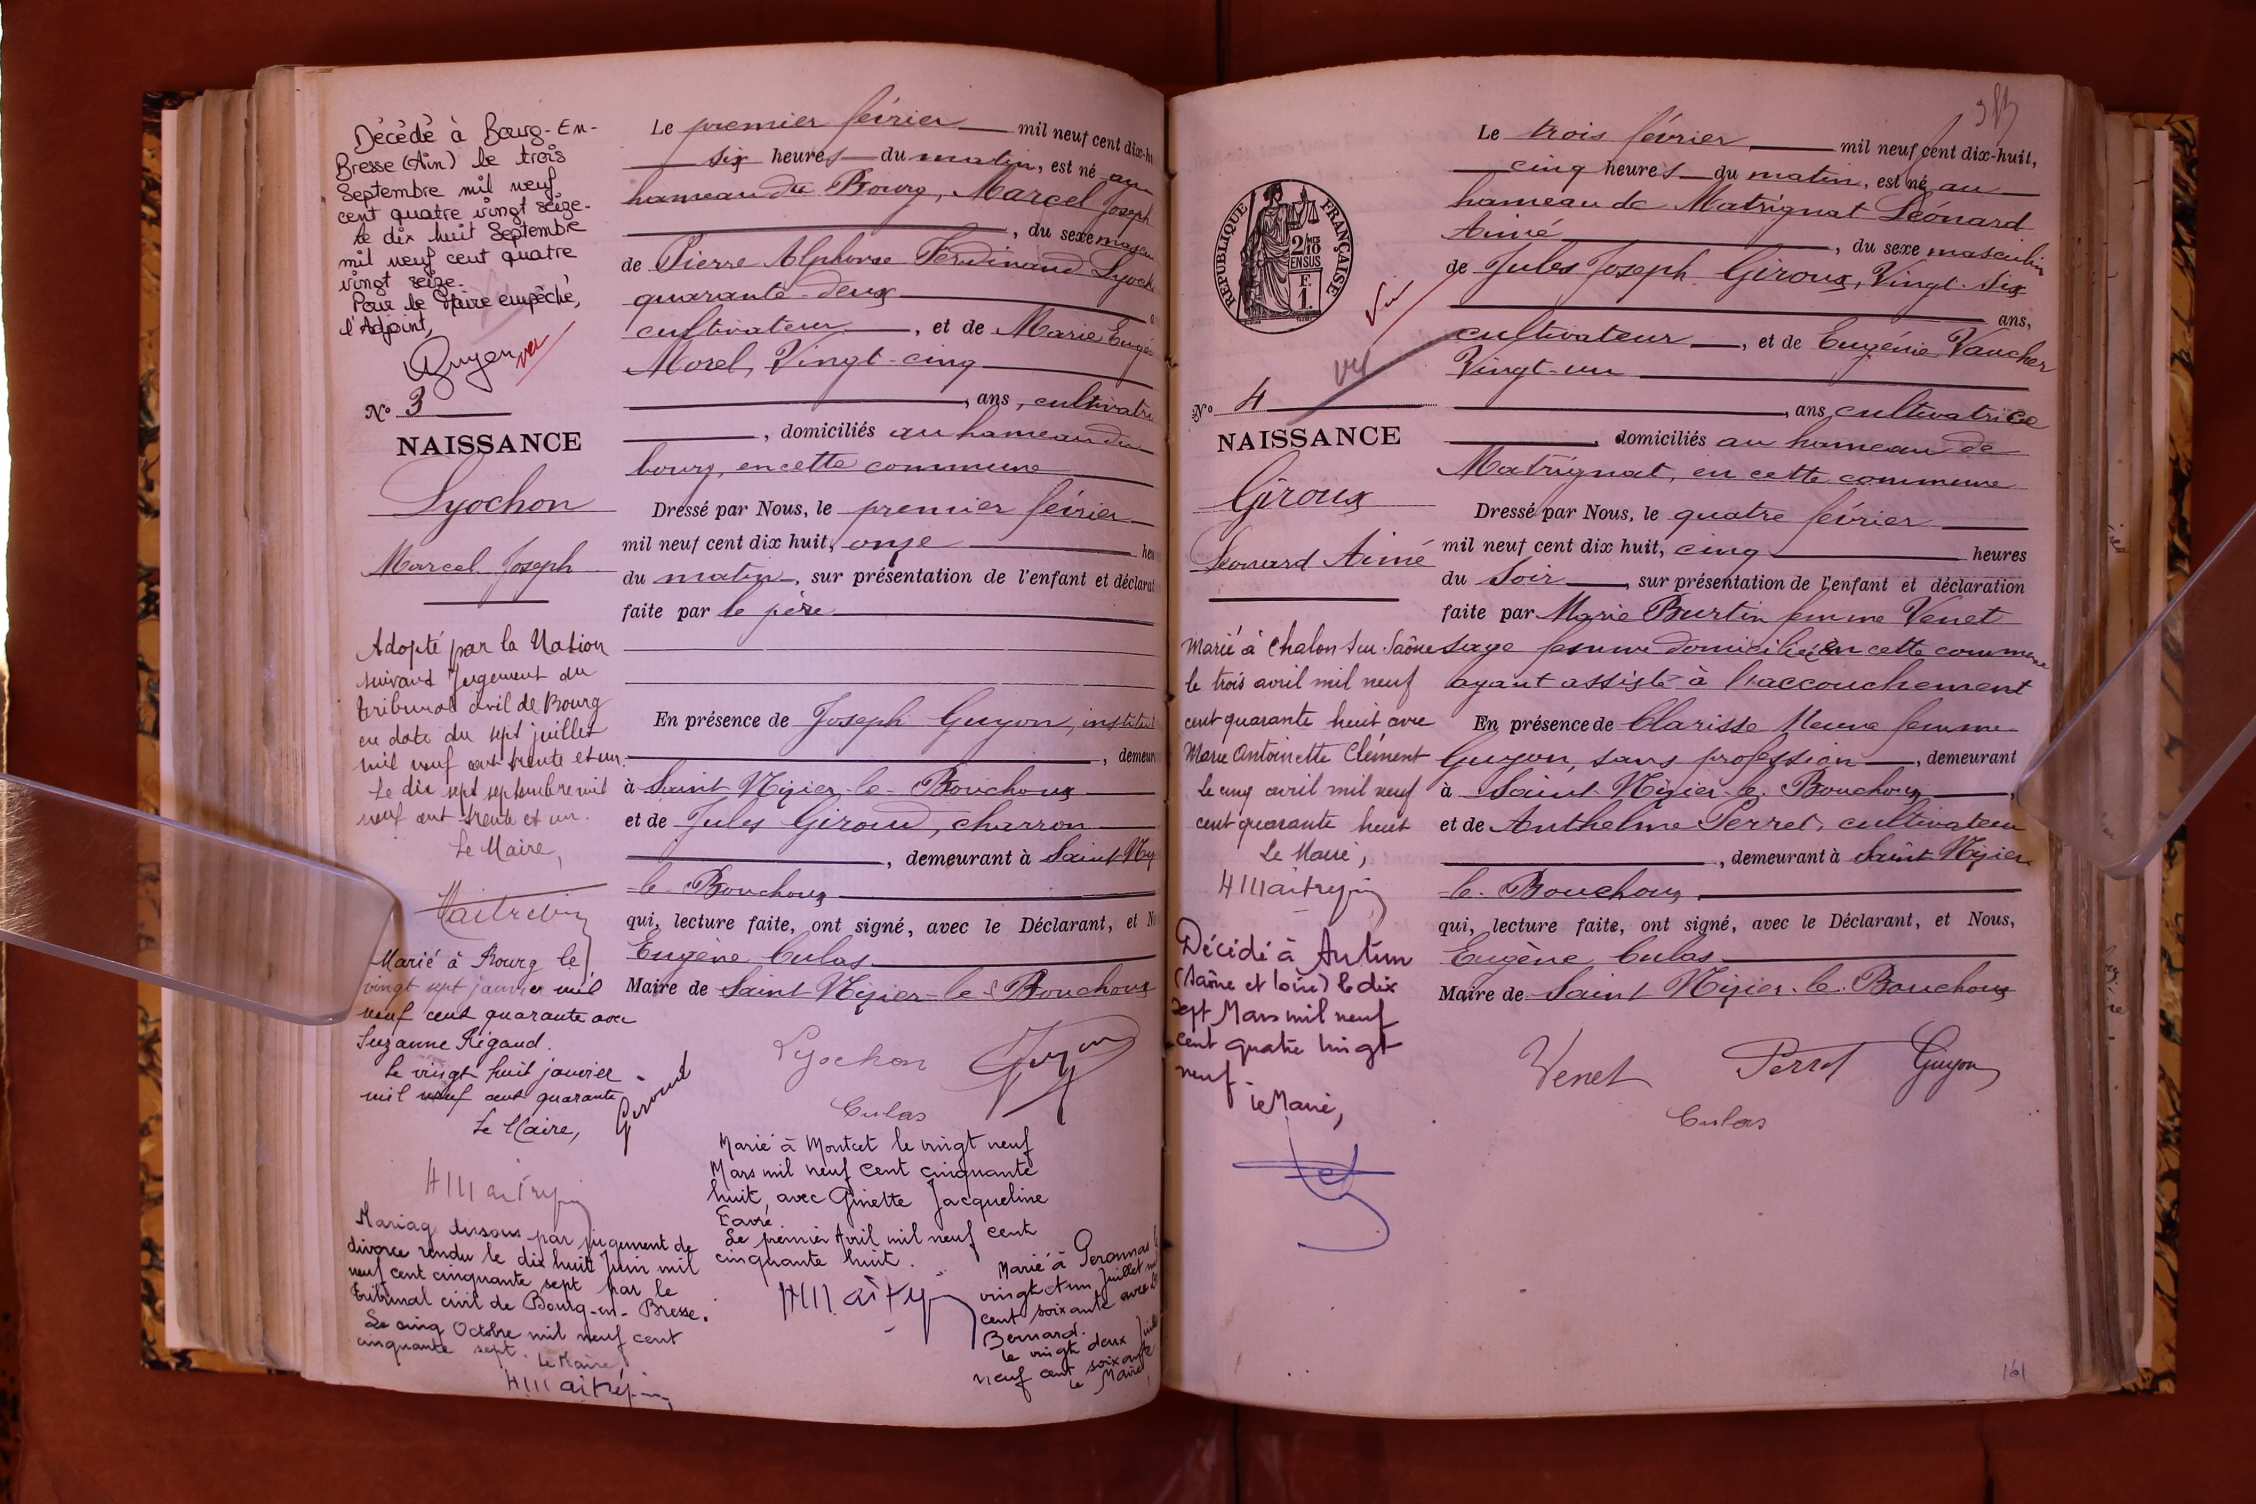 Décédé à Bourg-En-
Bresse (Ain) le trois
Septembre mil neuf
cent quatre vingt seize-
le dix huit Septembre
mil neuf cent quatre
vingt seize.
Pour le Maire empêché,
l'Adjoint,
vu
N° 3
NAISSANCE
Lyochon
Marcel Joseph
Adopté par la Nation
suivant Jugement du
tribunal civil de Bourg
en date du sept juillet
mil neuf cent trente et un.
Le dix sept septembre mil
neuf cent trente et un.
Le Maire,
Marié à Bourg le
vingt sept janvier mil
neuf cent quarante avec
Suzanne Rigaud.
Le vingt huit janvier
mil neuf cent quarante
Le Maire,
Mariage dissous par jugement de
divorce rendu le dix huit Juin mil
neuf cent cinquante sept par le
tribunal civil de Bourg-en-Bresse.
Le cinq Octobre mil neuf cent
cinquante sept. Le Maire
Le premier février mil neuf cent dix-hu
six heures du matin, est né au
hameau du Bourg, Marcel Joseph
, du sexe mascu
de Pierre Alphonse Ferdinand Lyoch
quarante-deux
cultivateur, et de Marie Eugé
Morel, Vingt-cinq
, ans, cultivatri
, domiciliés au hameau du
bourg, en cette commune
Dressé par Nous, le premier février
mil neuf cent dix huit, onze heu
du matin, sur présentation de l'enfant et déclarat
faite par le père
En présence de Joseph Guyon, institut
, demeur
à Saint Nizier-le-Bouchoux
et de Jules Giroud, charron
, demeurant à Saint Ny
le-Bouchoux
qui, lecture faite, ont signé, avec le Déclarant, et N
Eugène Culas
Maire de Saint Nizier-le-Bouchoux
Lyochon Guyon
Giroud
Culas
Marié à Montcet le vingt neuf
Mars mil neuf cent cinquante
huit, avec Ginette Jacqueline
Favre
Le premier Avril mil neuf cent
cinquante huit.
Marié à Peronnas
vingt et un Juillet
cent soixante avec
Bernard.
le vingt deux
neuf cent soixante
Le Maire
RÉPUBLIQUE FRANÇAISE
2/10 EN SUS
F. 1.
Vu
vu
N° 4
NAISSANCE
Giroux
Léonard Aimé
Marié à Chalon sur Saône
le trois avril mil neuf
cent quarante huit avec
Marie Antoinette Clément
le cinq avril mil neuf
cent quarante huit
Le Maire,
Décédé à Autun
(Saône et Loire) le dix
sept Mars mil neuf
cent quatre vingt
neuf.
Le Maire,
Le trois février mil neuf cent dix-huit,
cinq heures du matin, est né au
hameau de Matrignat Léonard
Aimé, du sexe masculin
de Jules Joseph Giroux, Vingt-six
ans,
cultivateur, et de Eugénie Vaucher
Vingt-un
, ans, cultivatrice
domiciliés au hameau de
Matrignat, en cette commune
Dressé par Nous, le quatre février
mil neuf cent dix huit, cinq heures
du Soir, sur présentation de l'enfant et déclaration
faite par Marie Burtin femme Venet
sage femme domiciliée en cette commune
ayant assisté à l'accouchement
En présence de Clarisse femme
Guyon, sans profession, demeurant
à Saint-Nizier-le-Bouchoux,
et de Anthelme Perret, cultivateur
, demeurant à Saint Nizier
le-Bouchoux
qui, lecture faite, ont signé, avec le Déclarant, et Nous,
Eugène Culas
Maire de Saint Nizier-le-Bouchoux
Venet Perret Guyon
Culas
161